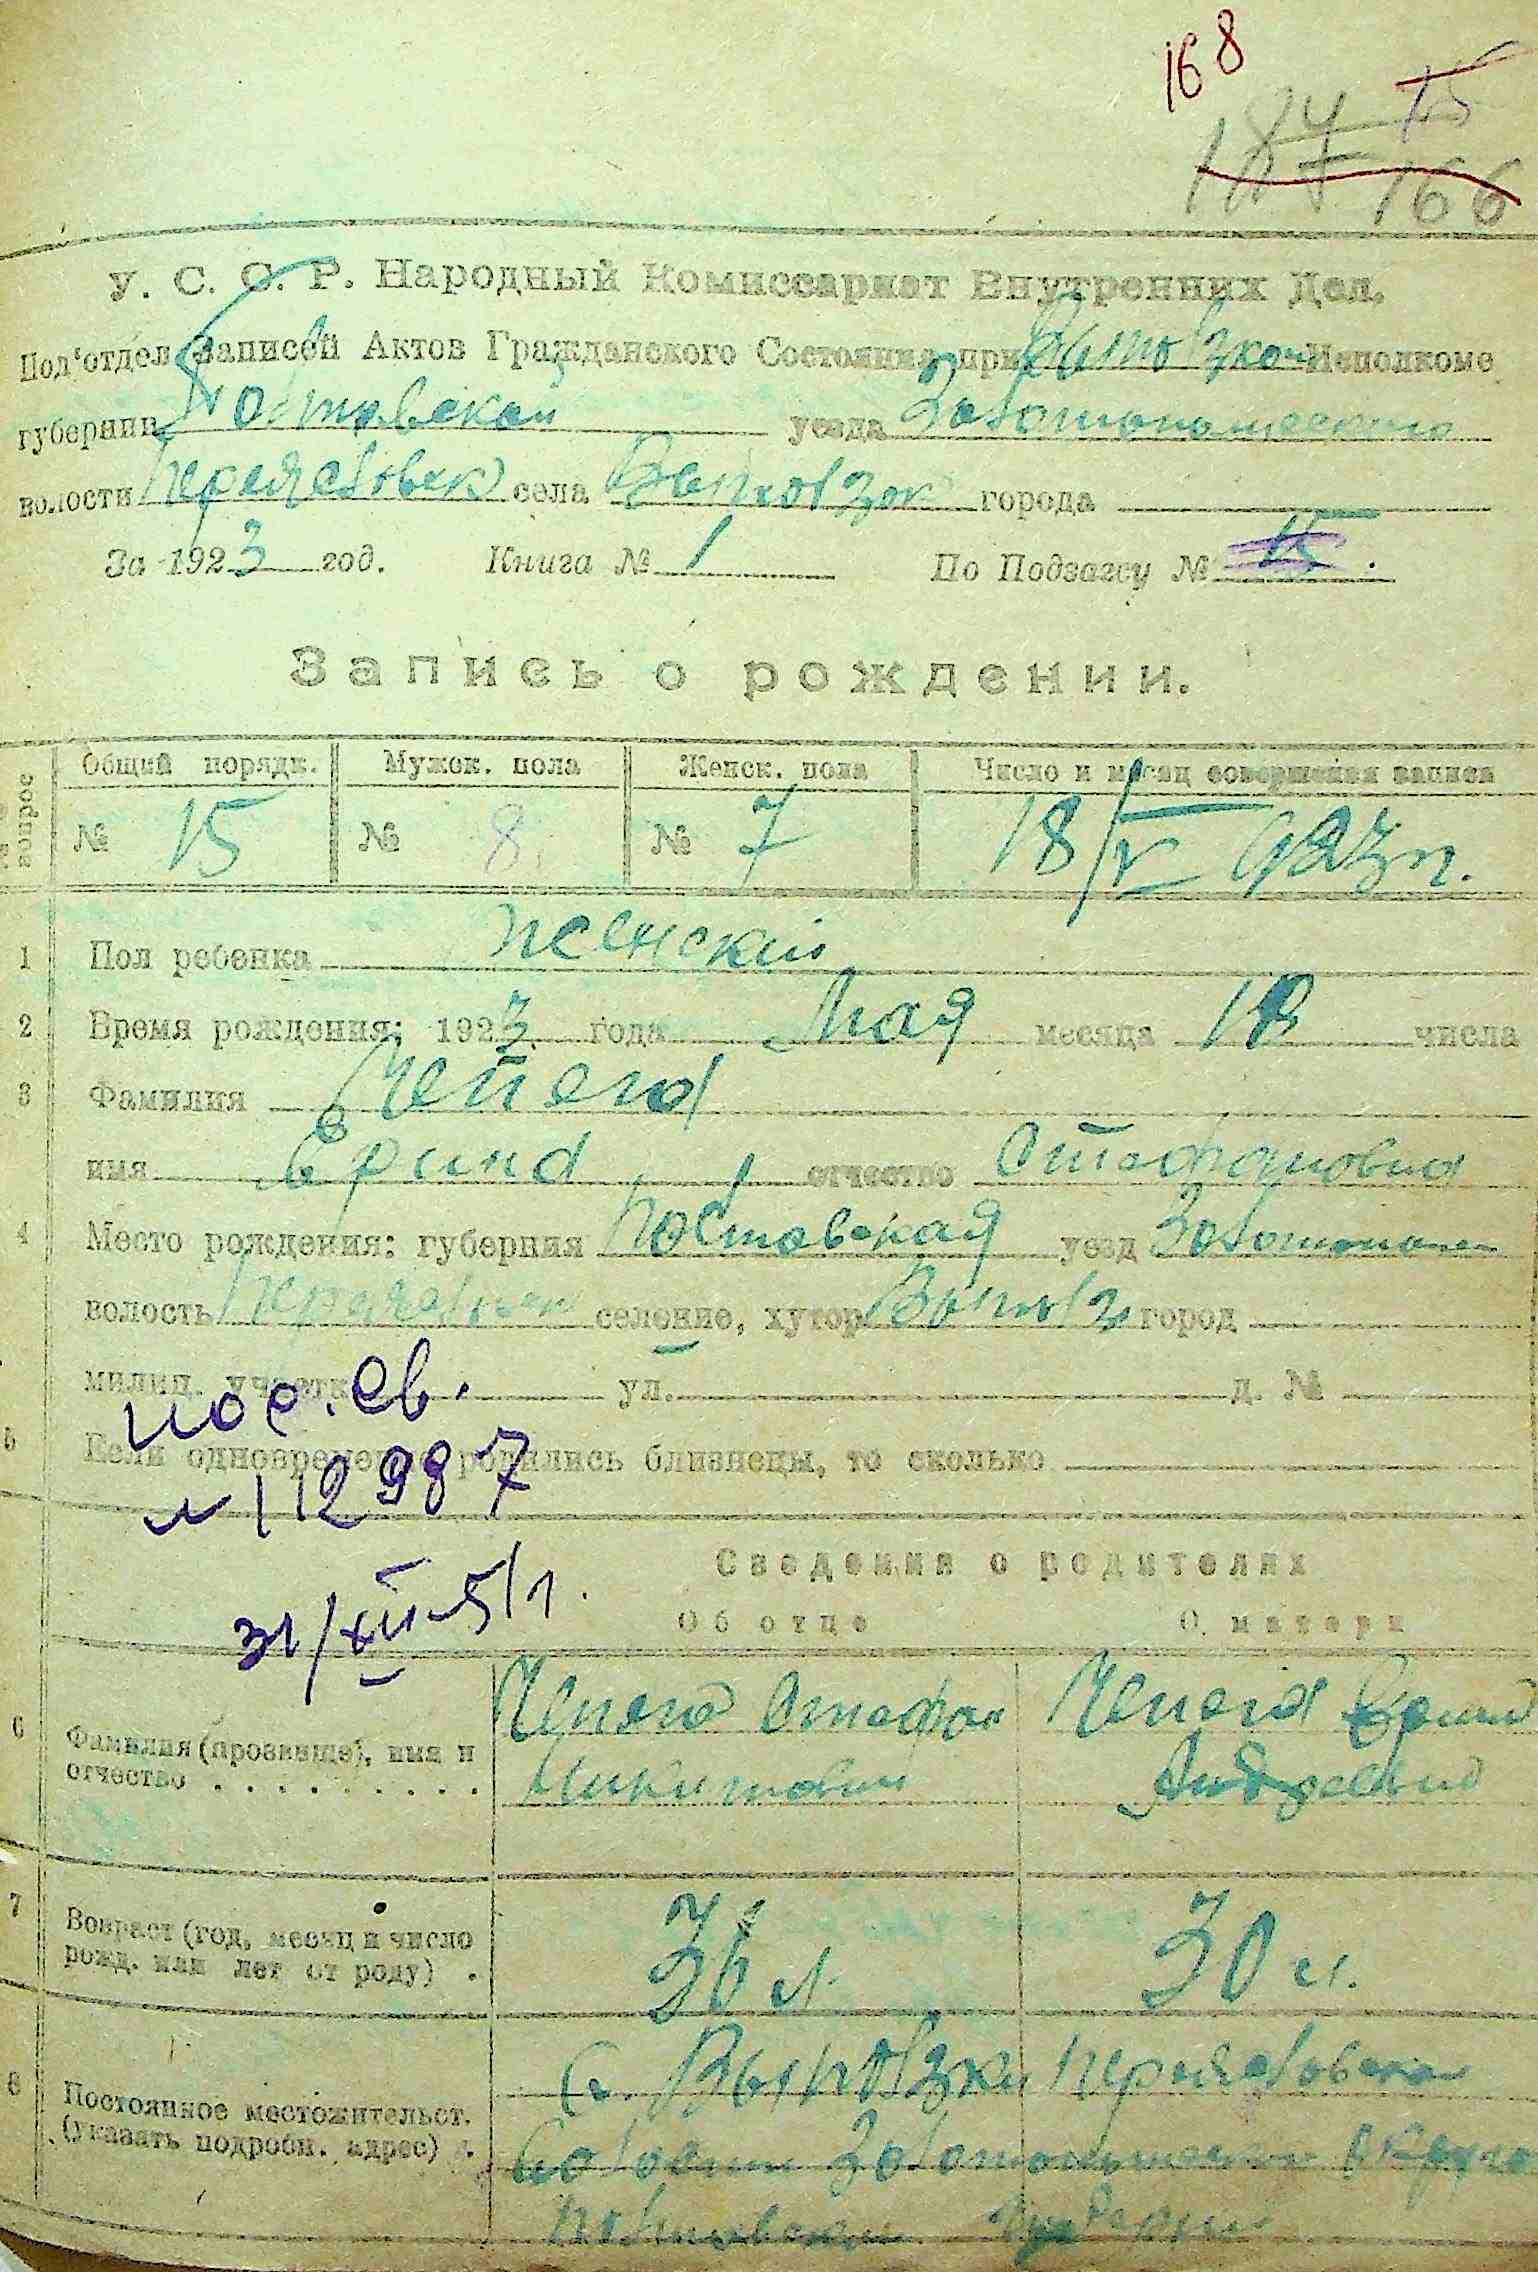 168
187 15
166
У. С. С. Р. Народный Комиссариат Внутренних Дел.
Под'отдел Записей Актов Гражданского Состояния при Исполкоме
губернии Полтавской уезда Золотоношского
волости села города
За 1923 год. Книга № 1 По Подзагсу № 15
Запись о рождении.
№ вопрос Общий порядк. Мужск. пола Женск. пола Число и месяц совершения записи
№ 15 № 8 № 7 18/V 923 г.
1 Пол ребенка женский
2 Время рождения: 1923 года Мая месяца 18 числа
3 Фамилия Чепега
имя отчество Стефановна
4 Место рождения: губерния Полтавская уезд Золотонош
волость селение, хутор город
милиц. участк ул. д. №
5 Если одновременно родились близнецы, то сколько
пов. св.
№ 112987
31/XII-51 г.
Сведения о родителях
Об отце О матери
6 Фамилия (прозвище), имя и Чепега Стефан Чепега
отчество . . . . . . . . . . Никитович Андреевна
7 Возраст (год, месяц и число
рожд. или лет от роду) . 36 л. 30 л.
8 Постоянное местожительст. с.
(указать подробн. адрес) . волости Золотоношского
Полтавской Губернии